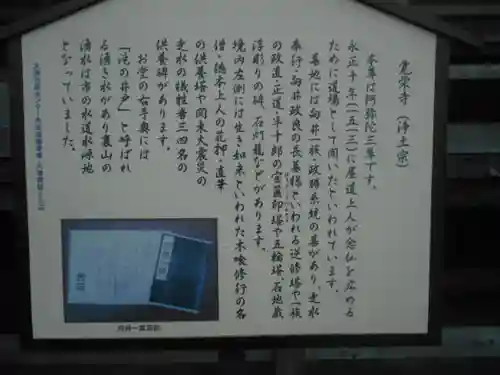 覚栄寺（浄土宗）
本尊は阿弥陀三尊です。
永正十年（一五一三）に屋道上人が念仏を広める
ために道場として開いたといわれています。
墓地には向井一族・政勝系統の墓があり、走水
奉行・向井政良の長墓様といわれる逆修塔や一族
の政直・正道・半十郎の宝篋印塔や五輪塔、石地蔵
浮彫りの碑、石灯籠などがあります。
境内左側には生き如来といわれた木喰修行の名
僧 徳本上人の花押・直筆
の供養塔や関東大震災の
走水の犠牲者三四名の
供養碑があります。
お堂の右手奥には
「滝の井戸」と呼ばれ
る湧き水があり裏山の
湧水は市の水道水源地
となっていました。